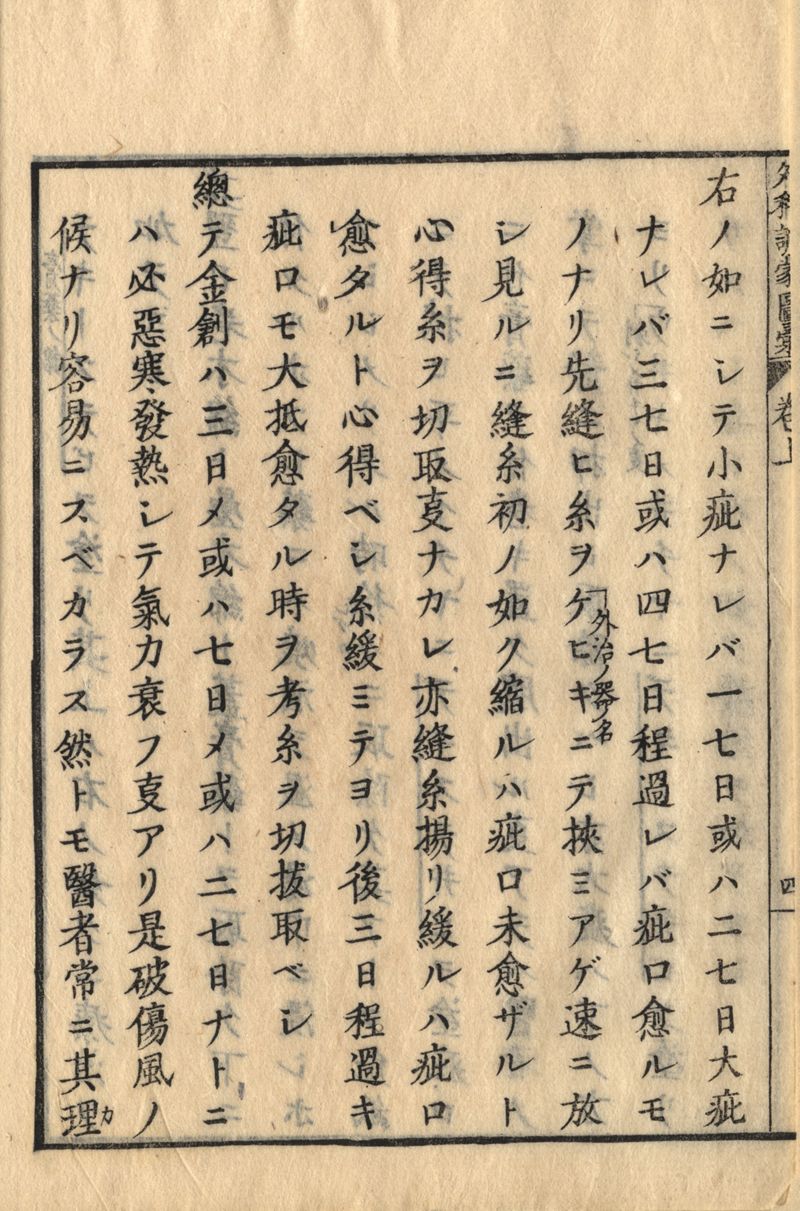 右ノ如ニシテ小疵ナレバ一七日或ハ二七日大疵
ナレバ三七日或ハ四七日程過レバ疵口愈ルモ
ノナリ先縫ヒ糸ヲケヒキニテ挾ミアゲ速ニ放
外治ノ器ノ名
シ見ルニ縫糸初ノ如ク縮ルハ疵口未愈ザルト
心得糸ヲ切取叓ナカレ亦縫糸揚リ緩ルハ疵口
愈タルト心得ベシ糸緩ミテヨリ後三日程過キ
疵口モ大抵愈タル時ヲ考糸ヲ切拔取ベシ
總テ金創ハ三日メ或ハ七日メ或ハ二七日ナトニ
ハ必惡寒發熱シテ氣力衰フ叓アリ是破傷風ノ
候ナリ容易ニスベカラス然トモ醫者常ニ其理カ
外科訓蒙圖彙
卷上
四